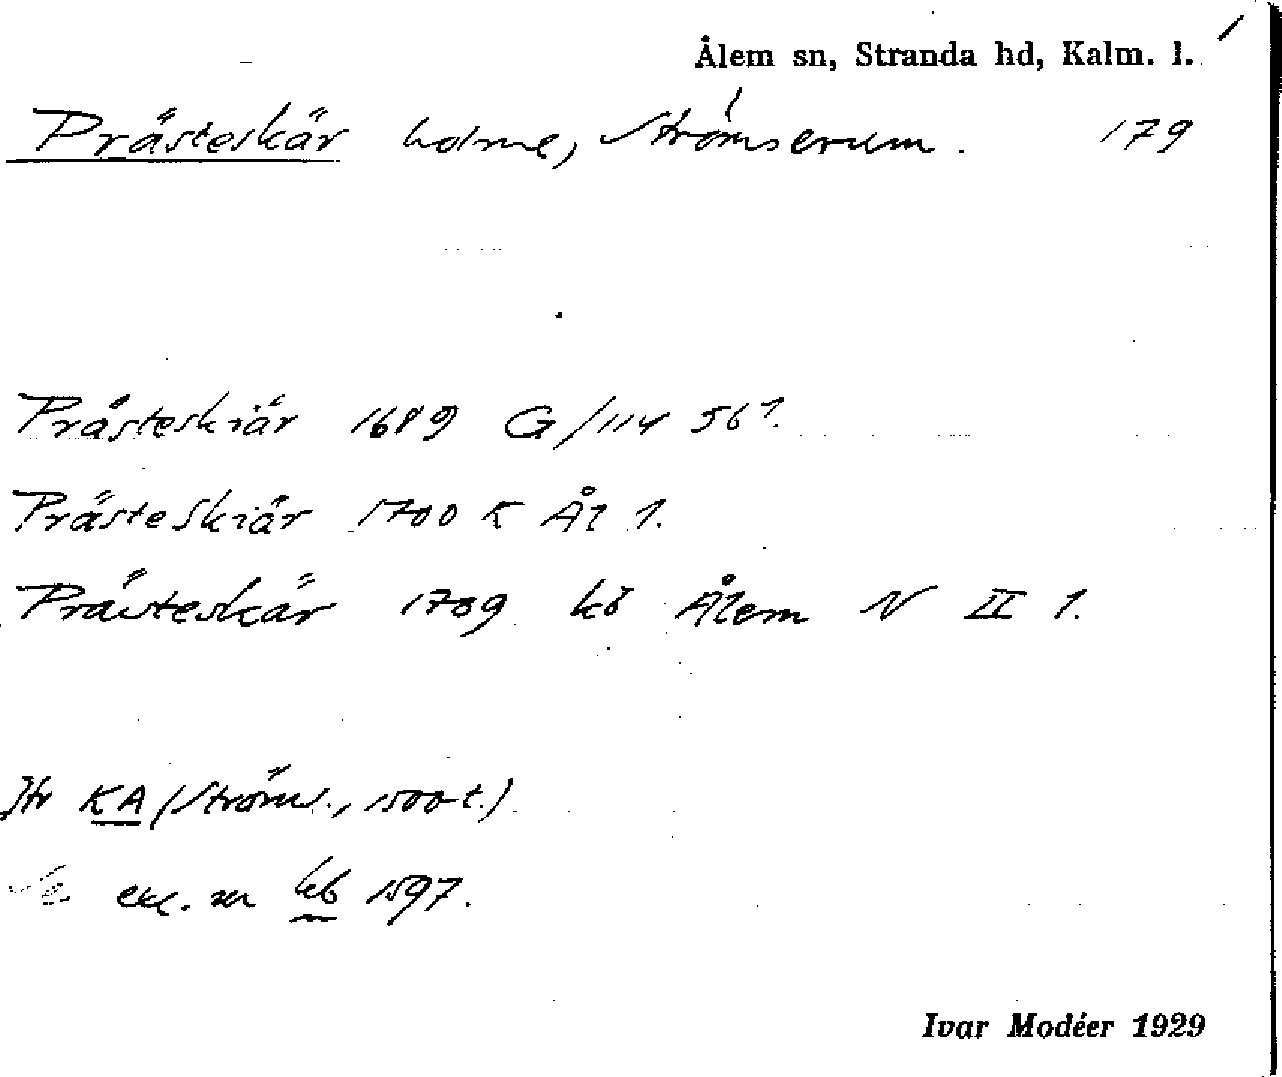 Ålem sn, Stranda hd, Kalm. l.
Prästeskär holme, Strömserum. 179
Prästeskiär 1689 G/114 56 1.
Prästeskiär 1700 K Ål 1.
Prästeskär 1709 kö Ålem N II 1.
Jfr KA (Ströms., 1500-t.)
Se ex. ur kb 1597.
Ivar Modéer 1929